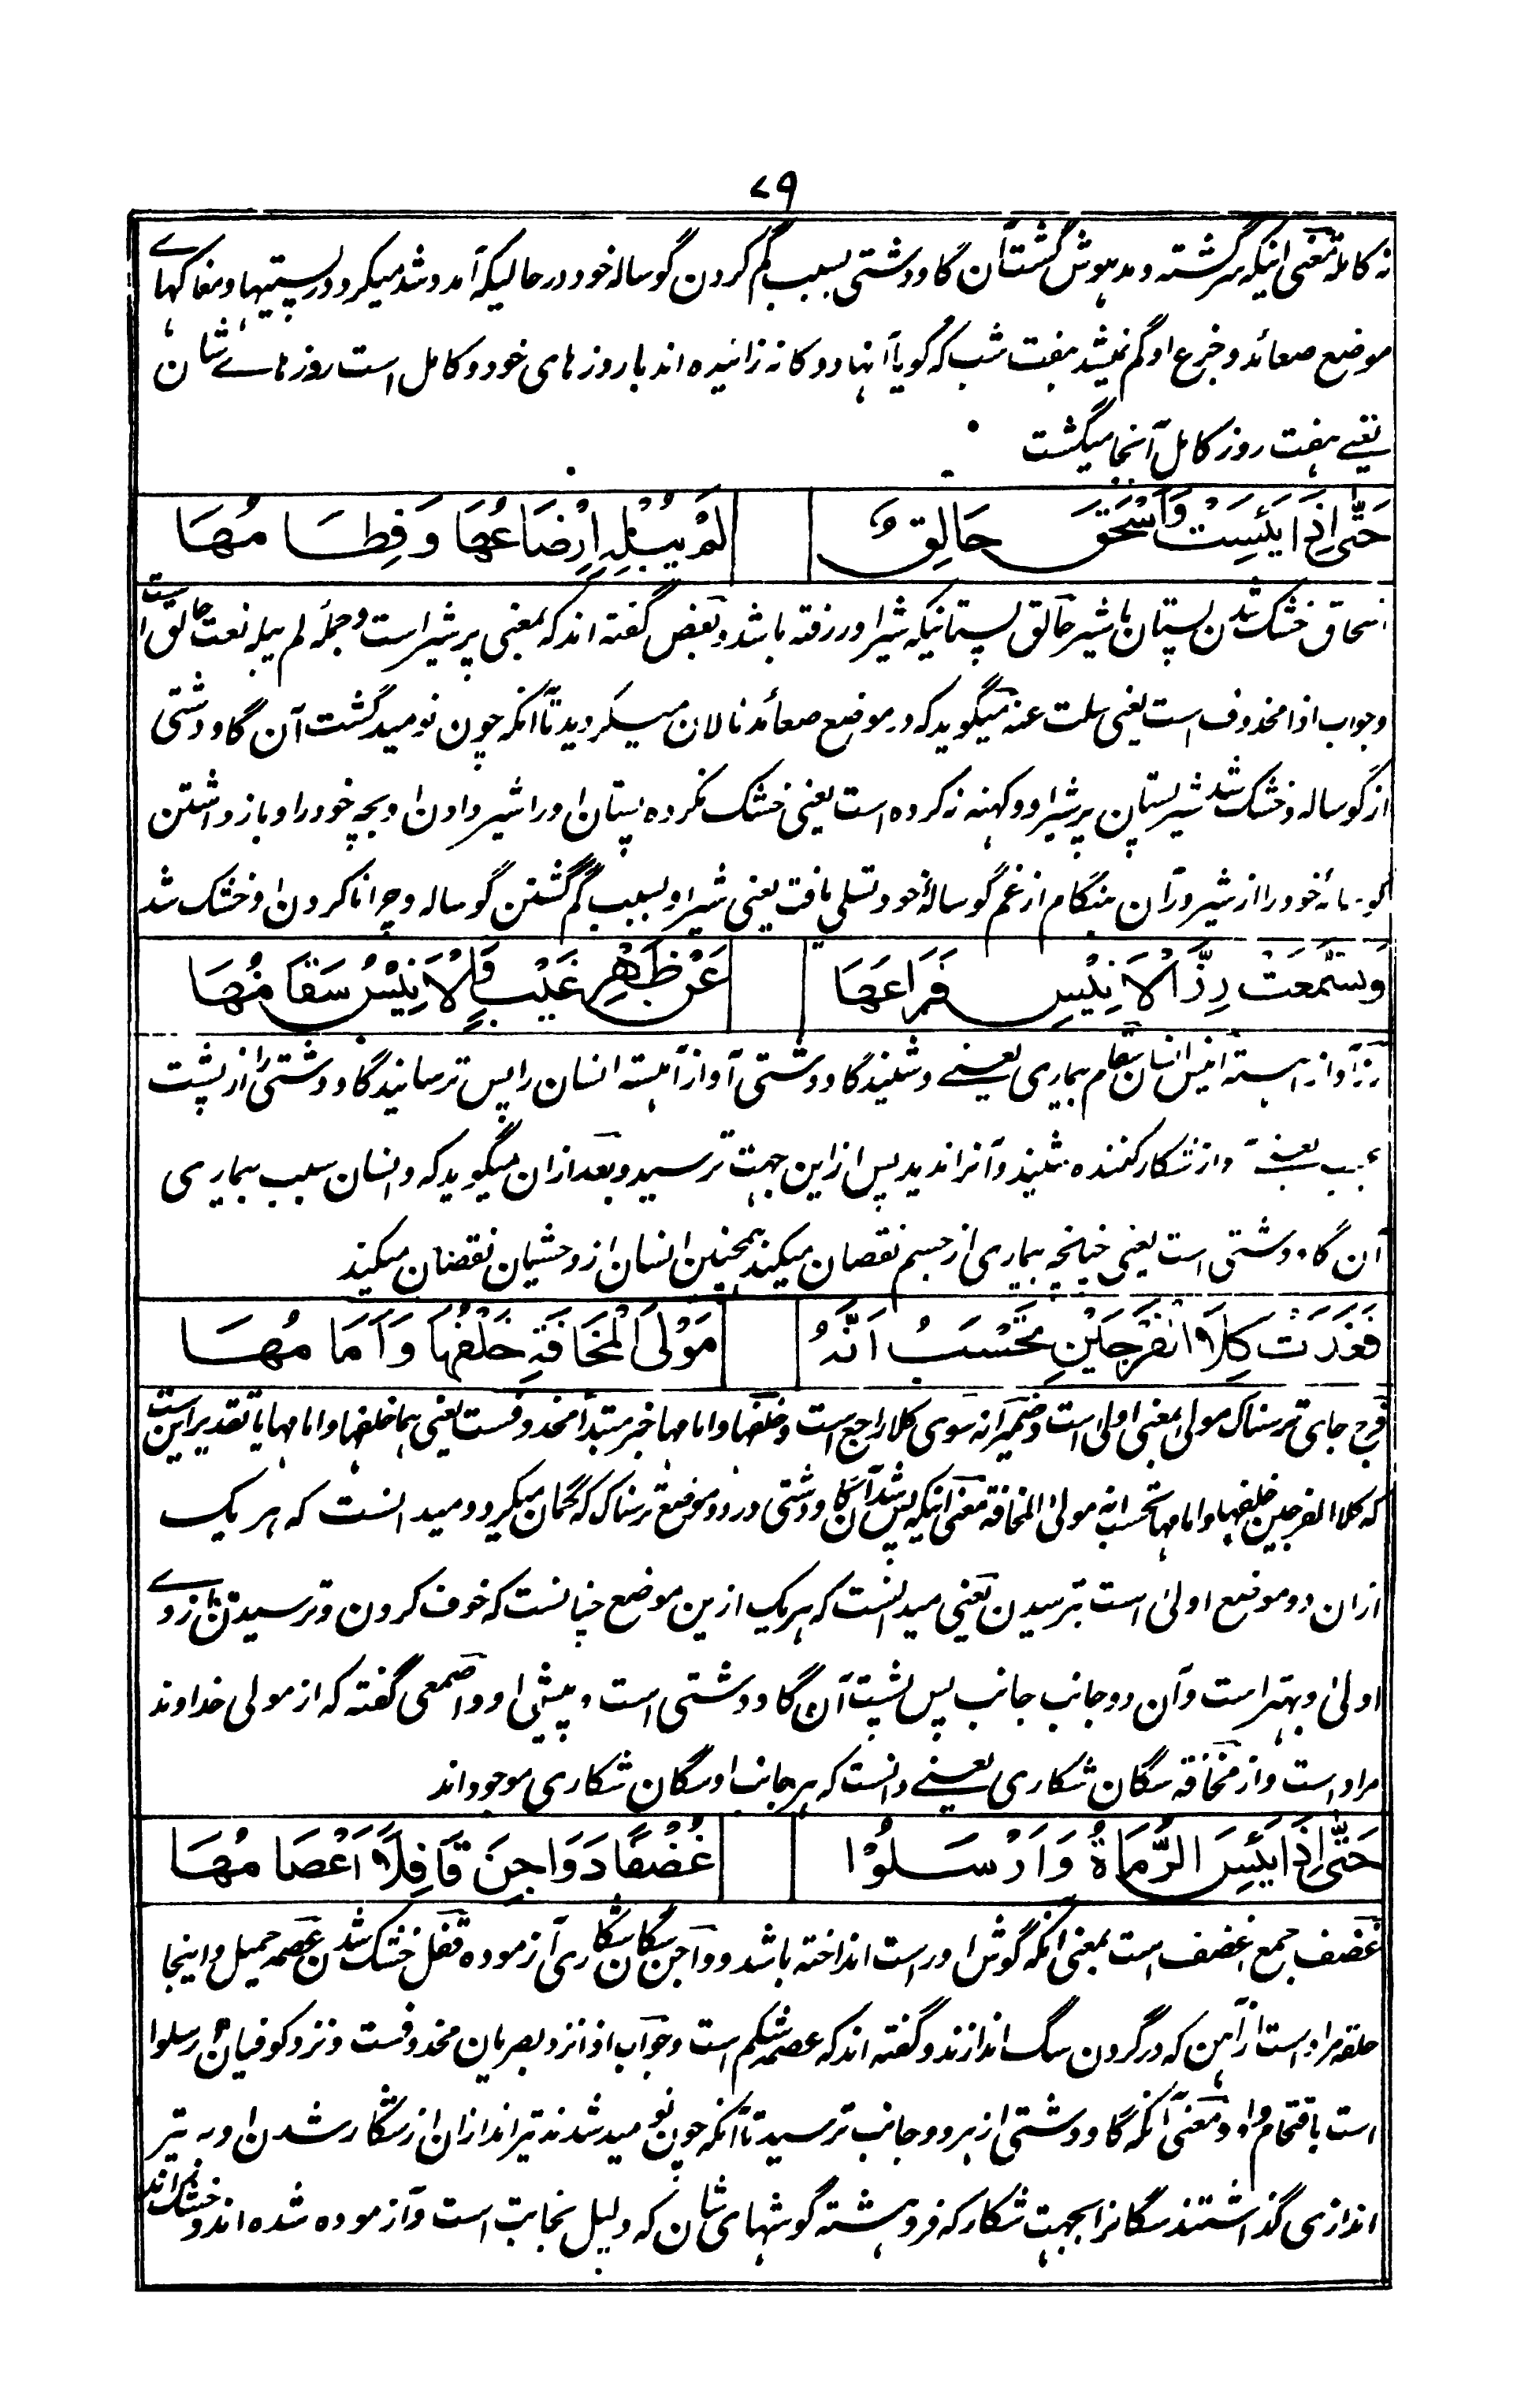 ۷۹
نه کامله معنی اینکه سرگشته و مدهوش گشت آن گاو دشتی بسبب گم کردن گوساله خود در حالیکه آمد و شد میکرد در پستیها و مغاکهای
موضع صعائد و جزع او گم نمیشد هفت شب که گویا آنها دوگانه زائیده اند با روزهای خود و کامل است روزهای شان
یعنی هفت روز کامل آنجا میگشت
حَتّٰى اِذَا يَئِسَتْ وَاَسْحَقَ حَالِقٌ
لَمْ يُبْلِهٖ اِرْضَاعُهَا وَفِطَامُهَا
اسحاق خشک شدن پستان با شیر حالق پستانیکه شیر او رفته باشد و بعض گفته اند که بمعنی پر شیر است و جملهٔ لم یبله نعت حالق است
و جواب اذا محذوف است یعنی سلت عنه میگوید که در موضع صعائد نالان میگردید تا آنکه چون نومید گشت آن گاو دشتی
از گوساله و خشک شد شیر پستان پر شیر او و کهنه نکرده است یعنی خشک نکرده پستان او را شیر دادن او بچه خود را و باز داشتن
گوسالهٔ خود را از شیر و درآن هنگام از غم گوسالهٔ خود تسلی یافت یعنی شیر او بسبب گم گشتن گوساله و چرا ناکردن او خشک شد
وَتَسَمَّعَتْ رِزَّ الْاَنِيْسِ فَرَاعَهَا
عَنْ ظَهْرِ غَيْبٍ وَالْاَنِيْسُ سَقَامُهَا
رز آواز آهسته انیس انسان سقام بیماری یعنی و شنید گاو دشتی آواز آهسته انسان را پس ترسانید گاو دشتی را از پشت
غیب یعنی آواز شکار کننده شنید و آنرا ندید پس ازاین جهت ترسید و بعد ازان میگوید که و انسان سبب بیماری
آن گاو دشتی است یعنی چنانچه بیماری از جسم نقصان میکند همچنین انسان از وحشیان نقصان میکند
فَغَدَتْ كِلَا الْفَرْجَيْنِ تَحْسَبُ اَنَّهٗ
مَوْلَى الْمَخَافَةِ خَلْفُهَا وَاَمَامُهَا
فرج جای ترسناک مولی بمعنی اولی است و ضمیر انه سوی کلا راجع است و خلفها و امامها خبر مبتدا محذوفست یعنی هما خلفها و امامها یا تقدیر این است
که کلا الفرجین خلفها و امامها تحسب انه مولی المخافة معنی اینکه پس شد آن گاو دشتی در دو موضع ترسناک که گمان میکرد و میدانست که هر یک
ازان دو موضع اولی است بترسیدن یعنی میدانست که هر یک ازین موضع چنانست که خوف کردن و ترسیدن از وی
اولی و بهتر است و آن دو جانب جانب پس پشت آن گاو دشتی است و پیشی او و اصمعی گفته که از مولی خداوند
مراد است و از مخافة سگان شکاری یعنی دانست که هر جانب او سگان شکاری موجود اند
حَتّٰى اِذَا يَئِسَ الرُّمَاةُ وَاَرْسَلُوْا
غُضْفًا دَوَاجِنَ قَافِلًا اَعْصَامُهَا
غضف جمع اغضف است بمعنی آنکه گوش او راست انداخته باشد دواجن سگان شکاری آزموده قفل خشک شدن عصمه حمیل و اینجا
حلقه مراد است از آهن که در گردن سگ اندازند و گفته اند که عصمه شکم است و جواب اذا نزد بصریان محذوفست و نزد کوفیان ارسلوا
است باقتحام واو و معنی آنکه گاو دشتی از هر دو جانب ترسید تا آنکه چون نومید شدند تیراندازان از شکار شدن او به تیر
اندازی گذاشتند سگانرا بجهت شکار که فروهشته گوشهای شان که دلیل نجابت است و آزموده شده اند و خشک اند